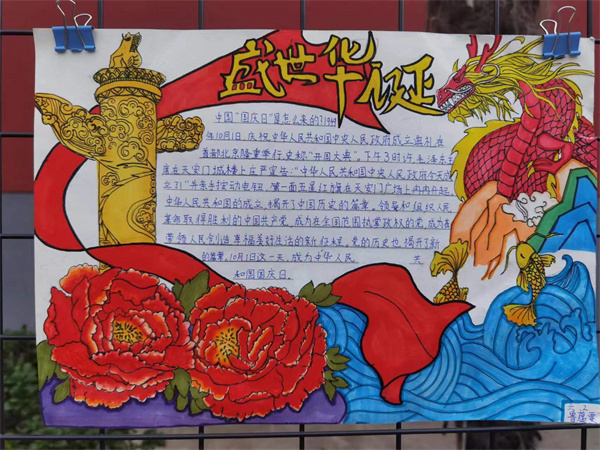 盛世华诞
中国"国庆日"是怎么来的？1949
年10月1日,庆祝中华人民共和国中央人民政府成立典礼在
首都北京隆重举行,史称"开国大典"。下午3时许,毛泽东主
席在天安门城楼上庄严宣告:"中华人民共和国中央人民政府今天成
立了!"并亲手按动电钮,第一面五星红旗在天安门广场上冉冉升起。
中华人民共和国的成立,揭开了中国历史的篇章。领导和组织人民
革命取得胜利的中国共产党,成为在全国范围执掌政权的党,成为
带领人民创造幸福美好生活的新征程,党的历史也揭开了新
的篇章。10月1日这一天,成为中华人民 共
和国国庆日。